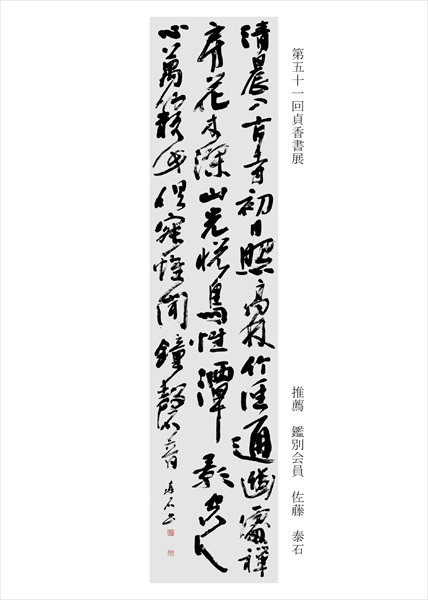 第五十一回貞香書展
推薦 鑑別会員 佐藤 泰石
清晨入古寺初日照高林竹径通幽處禪
房花木深山光悦鳥性潭影空人
心萬籟此俱寂惟聞鐘磬音 泰石